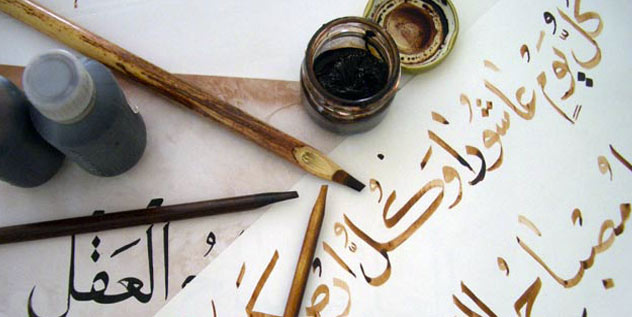 كُلُّ يَوْمٍ عَاشُورَا وَكُلُّ اَرْضٍ
مِصْبَاحُ
العَقْل